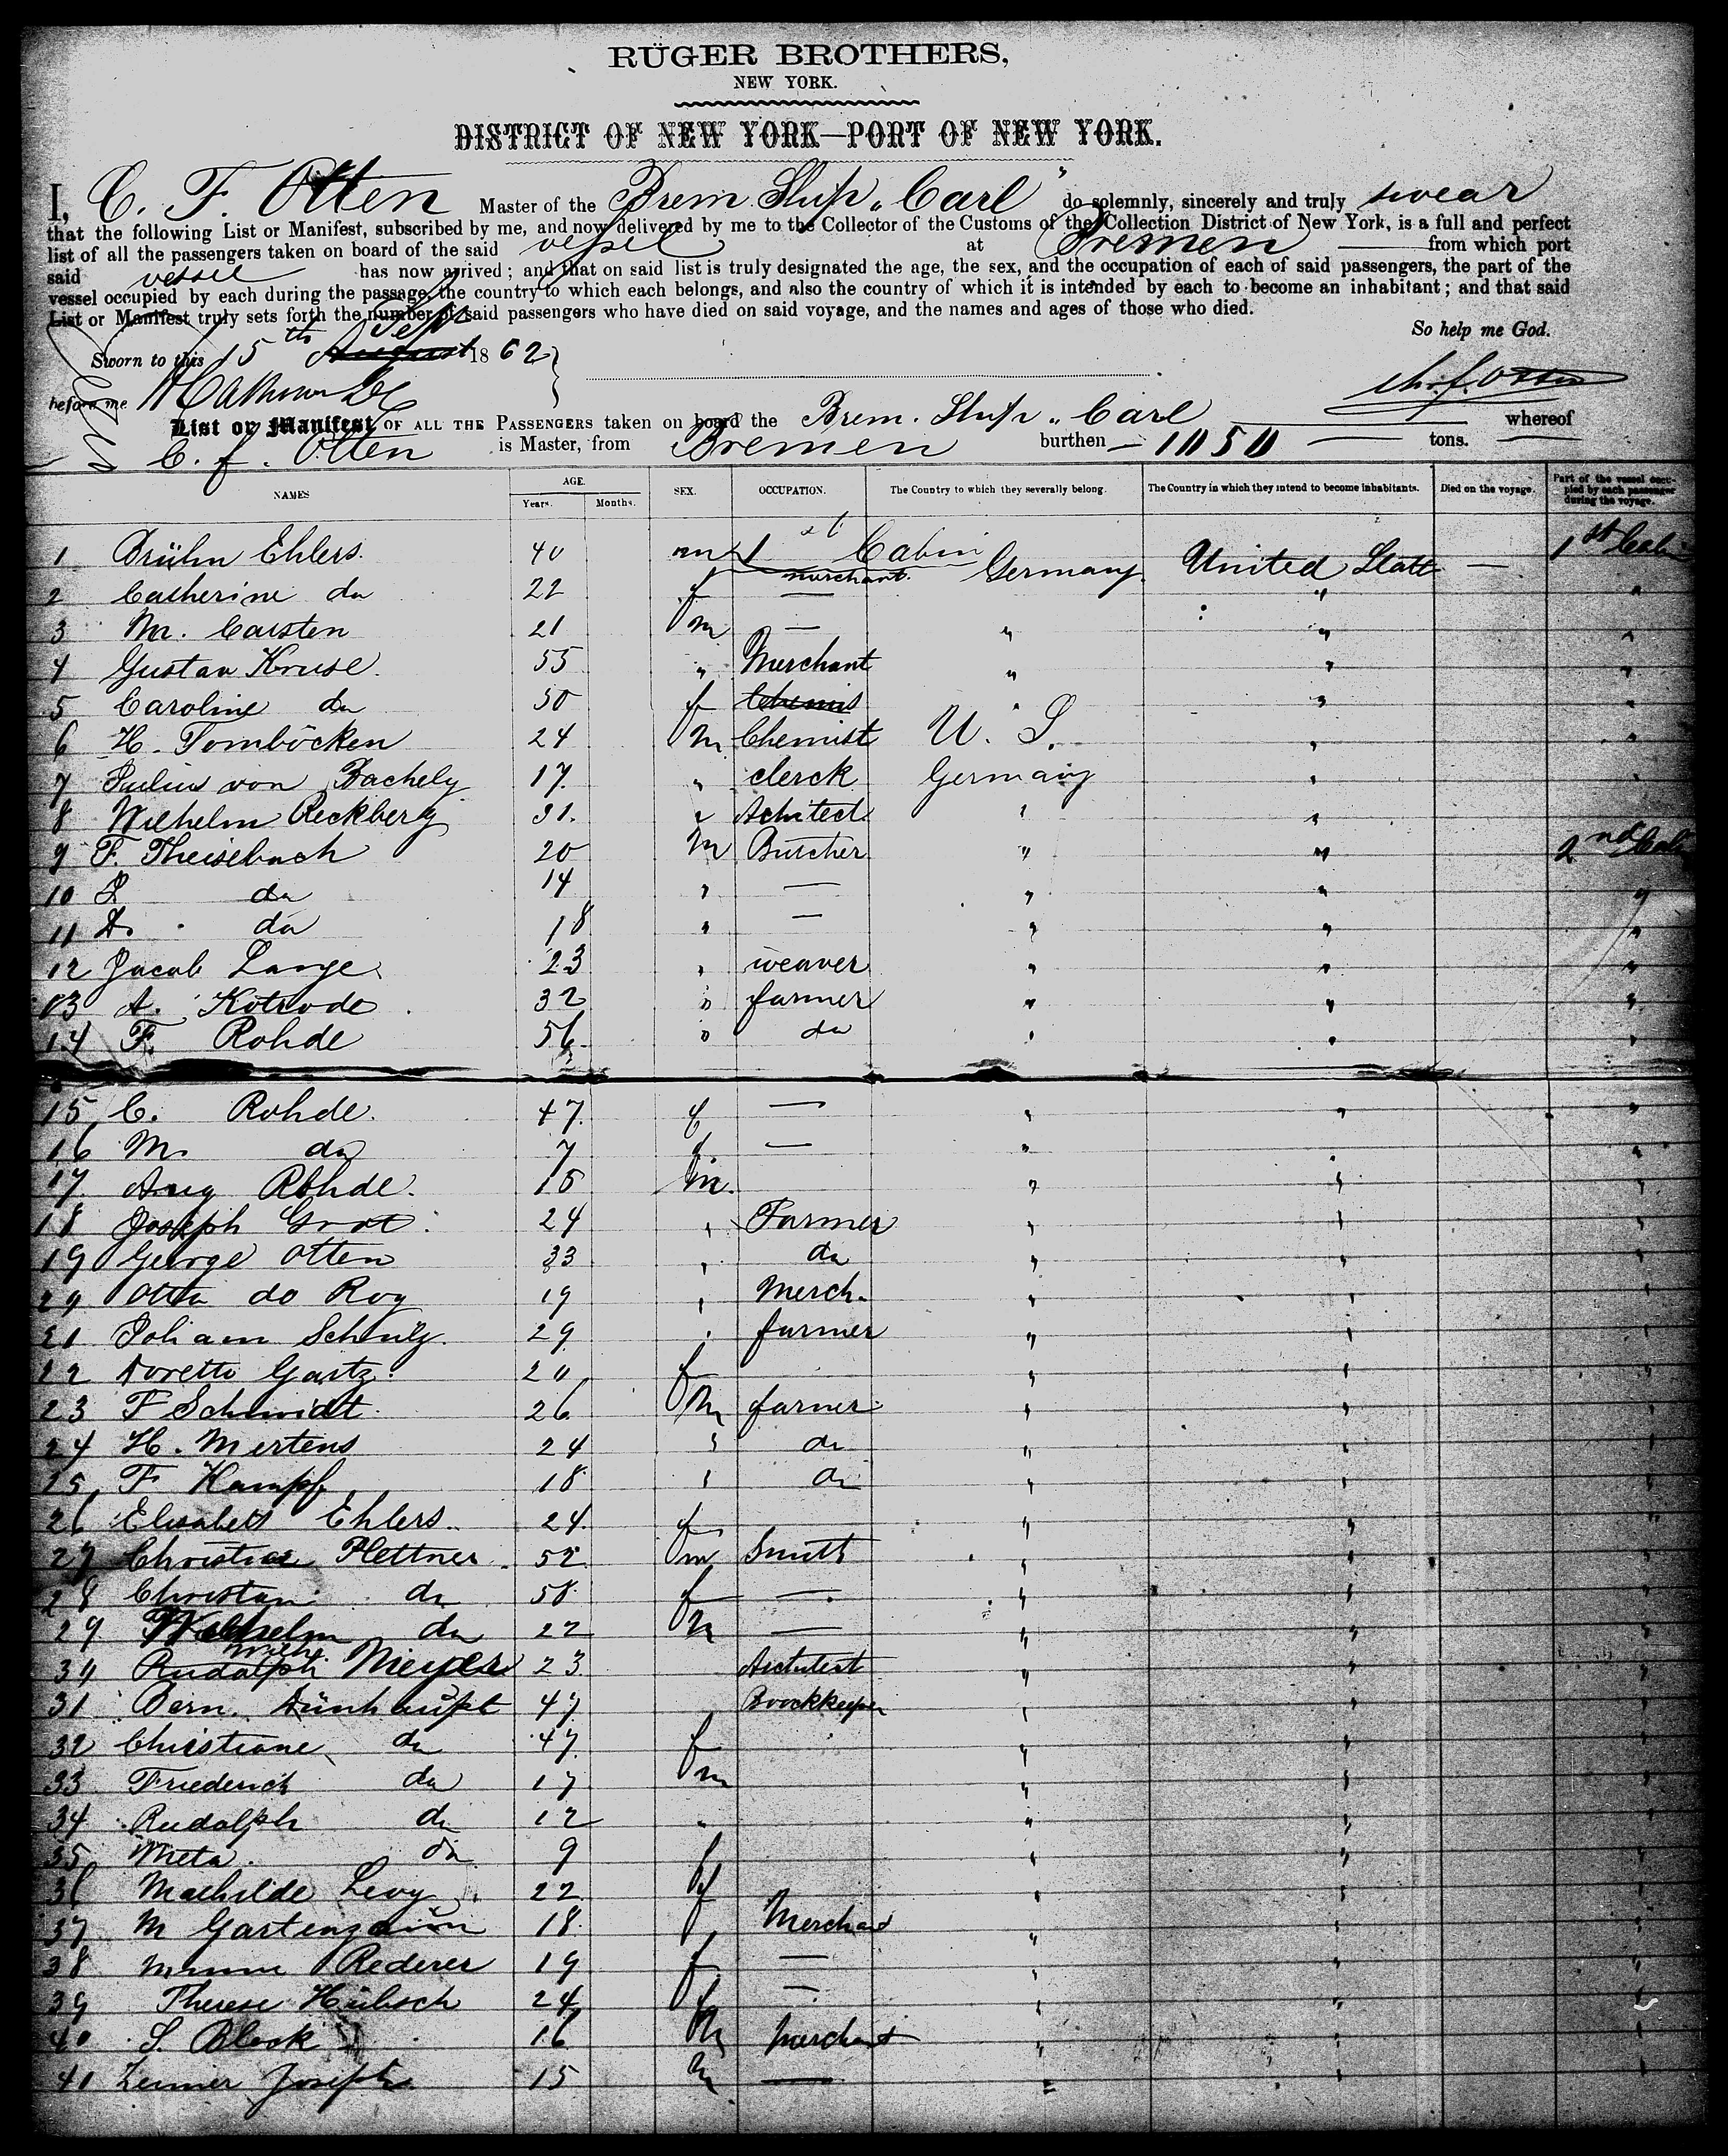 RÜGER BROTHERS,
NEW YORK.
DISTRICT OF NEW YORK—PORT OF NEW YORK.
I, C. F. Otten Master of the Brem. Ship „Carl" do solemnly, sincerely and truly swear
that the following List or Manifest, subscribed by me, and now delivered by me to the Collector of the Customs of the Collection District of New York, is a full and perfect
list of all the passengers taken on board of the said vessel at Bremen from which port
said vessel has now arrived; and that on said list is truly designated the age, the sex, and the occupation of each of said passengers, the part of the
vessel occupied by each during the passage, the country to which each belongs, and also the country of which it is intended by each to become an inhabitant; and that said
List or Manifest truly sets forth the number of said passengers who have died on said voyage, and the names and ages of those who died.
So help me God.
Sworn to this 15th August Sept 1862
before me
Chr. f. Otten
List or Manifest OF ALL THE PASSENGERS taken on board the Brem. Ship „Carl whereof
C. f. Otten is Master, from Bremen burthen 1050 tons.
NAMES AGE. Years. Months. SEX. OCCUPATION. The Country to which they severally belong. The Country in which they intend to become inhabitants. Died on the voyage. Part of the vessel occupied by each passenger during the voyage.
1st Cabin
1 Brühn Ehlers. 40 m merchant. Germany United State — 1st Cabin
2 Catherine do 22 f — " "
3 M. Carsten 21 m — " " "
4 Gustav Kruse. 55 " Merchant " " "
5 Caroline do 50 f Chemis " " "
6 H. Tomböcken 24 m Chemist U. S. " "
7 Julius von Bachely 17. " clerck Germany " "
8 Wilhelm Reckberg 31. " Achitect. " "
9 F. Theisebach 20 m Butcher " " 2nd Cabin
10 L do 14 " — " " "
11 A. do 18 " — " " "
12 Jacob Lange. 23 " weaver " " "
13 A. Kotrode 32 " farmer " " "
14 F. Rohde 56. " do " " "
15 C. Rohde. 47. f — " " "
16 M. do 7 f — " " "
17. Aug Rohde. 15 m. " " "
18 Joseph Grot. 24 " Farmer " " "
19 George Otten 33 " do " " "
20 Otto do Roy 19 " Merch. " " "
21 Joh am Schulz. 29 " farmer " " "
22 Doretto Gartz. 20 f " " "
23 F Schmidt. 26 m farmer " " "
24 H. Mertens 24 " do " " "
25 F Kampf 18 " do " " "
26 Elisabeth Ehlers. 24. f " " "
27 Christian Plettner 52 m Smith " " "
28 Christian do 58. f — " " "
29 Wilhelm do 22 m — " " "
30 Rudolph Wilh. Meyer 23 Architect " " "
31 Bern. Dünhaupt 47 Boockkeeper " " "
32 Christiane do 47 f " " "
33 Friederich do 17 m " " "
34 Rudolph do 12 " " " "
35 Meta. do 9 f " " "
36 Mathilde Levy 22 f " " "
37 M Gartenzaun 18. Merchant " " "
38 Rederer 19 f — " " "
39 Therese Hübsch 24 f — " " "
40 S. Block 16 m Merchant " " "
41 Joseph. 15 m — " " "